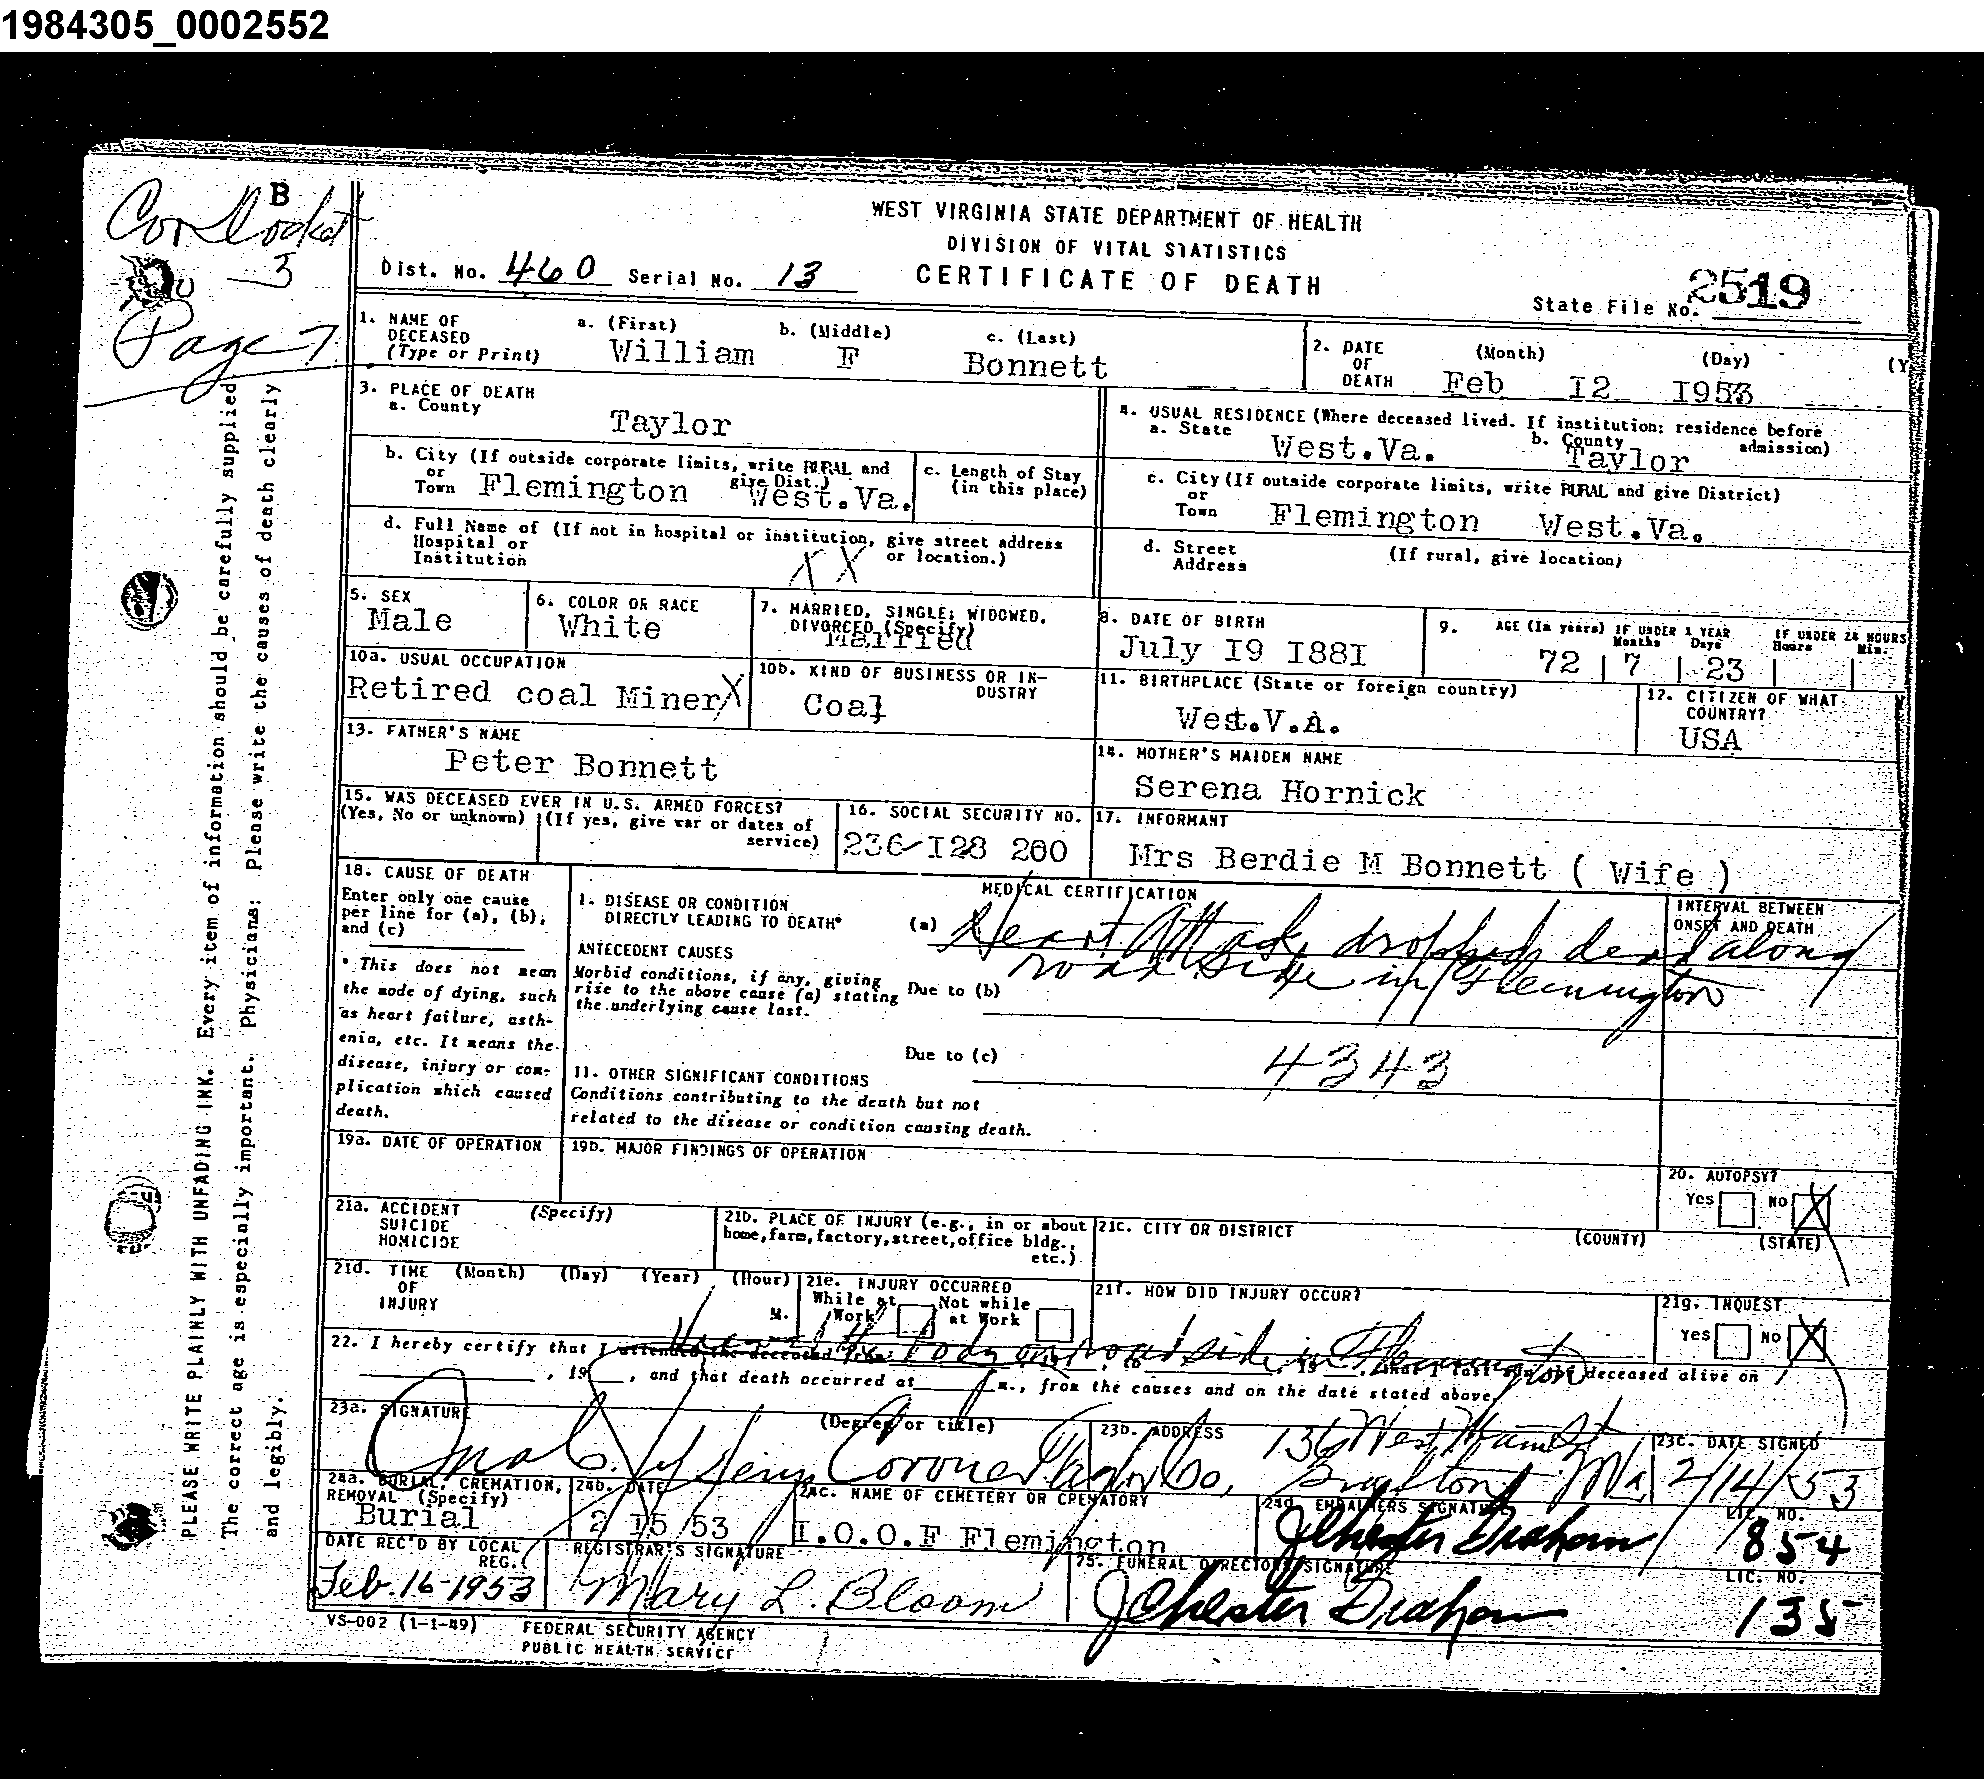 1984305_0002552
B
Cor Docket
3
Page 7
PLEASE WRITE PLAINLY WITH UNFADING INK. Every item of information should be carefully supplied
The correct age is especially important. Physicians: Please write the causes of death clearly
and legibly.
WEST VIRGINIA STATE DEPARTMENT OF HEALTH
DIVISION OF VITAL STATISTICS
Dist. No. 460 Serial No. 13 CERTIFICATE OF DEATH
State File No. 2519
1. NAME OF DECEASED (Type or Print) a. (First) William b. (Middle) F c. (Last) Bonnett
2. DATE OF DEATH (Month) (Day) (Y
Feb I2 I953
3. PLACE OF DEATH
a. County Taylor
4. USUAL RESIDENCE (Where deceased lived. If institution: residence before admission)
a. State West.Va. b. County Taylor
b. City (If outside corporate limits, write RURAL and give Dist.)
or Town Flemington West.Va.
c. Length of Stay (in this place)
c. City (If outside corporate limits, write RURAL and give District)
or Town Flemington West.Va.
d. Full Name of (If not in hospital or institution, give street address or location.)
Hospital or Institution XX
d. Street Address (If rural, give location)
5. SEX Male
6. COLOR OR RACE White
7. MARRIED, SINGLE, WIDOWED, DIVORCED (Specify) Married
8. DATE OF BIRTH July I9 I88I
9. AGE (In years) IF UNDER 1 YEAR Months Days IF UNDER 24 HOURS Hours Min.
72 7 23
10a. USUAL OCCUPATION Retired coal Miner X
10b. KIND OF BUSINESS OR INDUSTRY Coal
11. BIRTHPLACE (State or foreign country) West.V.A.
12. CITIZEN OF WHAT COUNTRY? USA
13. FATHER'S NAME Peter Bonnett
14. MOTHER'S MAIDEN NAME Serena Hornick
15. WAS DECEASED EVER IN U.S. ARMED FORCES?
(Yes, No or unknown) (If yes, give war or dates of service)
16. SOCIAL SECURITY NO. 236-I28 200
17. INFORMANT Mrs Berdie M Bonnett ( Wife )
18. CAUSE OF DEATH
Enter only one cause per line for (a), (b), and (c)
* This does not mean the mode of dying, such as heart failure, asthenia, etc. It means the disease, injury or complication which caused death.
MEDICAL CERTIFICATION
INTERVAL BETWEEN ONSET AND DEATH
1. DISEASE OR CONDITION DIRECTLY LEADING TO DEATH* (a) Heart Attack, dropped dead along
road side in Flemington
ANTECEDENT CAUSES
Morbid conditions, if any, giving rise to the above cause (a) stating the underlying cause last.
Due to (b)
Due to (c) 4343
11. OTHER SIGNIFICANT CONDITIONS
Conditions contributing to the death but not related to the disease or condition causing death.
19a. DATE OF OPERATION
19b. MAJOR FINDINGS OF OPERATION
20. AUTOPSY?
Yes No X
21a. ACCIDENT SUICIDE HOMICIDE (Specify)
21b. PLACE OF INJURY (e.g., in or about home, farm, factory, street, office bldg., etc.)
21c. CITY OR DISTRICT (COUNTY) (STATE)
21d. TIME OF INJURY (Month) (Day) (Year) (Hour) M.
21e. INJURY OCCURRED
While at Work Not while at Work
21f. HOW DID INJURY OCCUR?
21g. INQUEST
Yes No X
22. I hereby certify that I attended the deceased from body on roadside in Flemington deceased alive on
, 19 , and that death occurred at m., from the causes and on the date stated above.
23a. SIGNATURE (Degree or title) Coroner Taylor Co,
23b. ADDRESS 136 West Main St
23c. DATE SIGNED 2/14/53
24a. BURIAL, CREMATION, REMOVAL (Specify) Burial
24b. DATE 2 I5/53
24c. NAME OF CEMETERY OR CREMATORY I.O.O.F Flemington
24d. EMBALMERS SIGNATURE LIC. NO. 854
DATE REC'D BY LOCAL REG. Feb. 16-1953
REGISTRAR'S SIGNATURE Mary L. Bloom
25. FUNERAL DIRECTORS SIGNATURE LIC. NO. 135
VS-002 (1-1-49) FEDERAL SECURITY AGENCY
PUBLIC HEALTH SERVICE